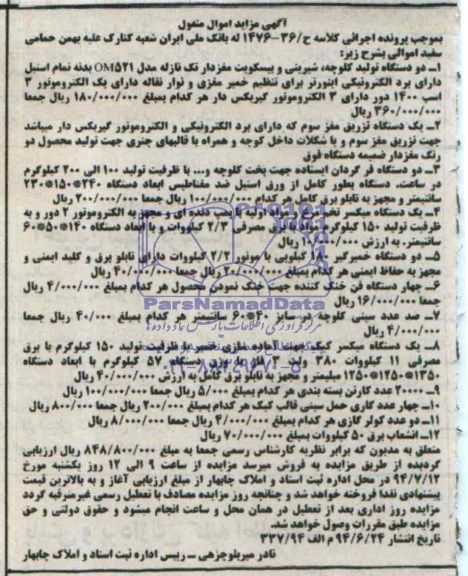 آگهی مزایده اموال منقول
بموجب پرونده اجرائی کلاسه ج/۳۶-۱۴۷۶ له بانک ملی ایران شعبه کنارک علیه بهمن حمامی
سفید اموالی بشرح زیر:
۱ـ دو دستگاه تولید کلوچه، شیرینی و بیسکویت مغزدار تک نازله مدل OM۵۲۱ بدنه تمام استیل
دارای برد الکترونیکی اینورتر برای تنظیم خمیر مغزی و نوار نقاله دارای یک الکتروموتور ۳
اسب ۱۴۰۰ دور دارای ۳ الکتروموتور گیربکس دار هر کدام بمبلغ ۱۸۰/۰۰۰/۰۰۰ ریال جمعا
۳۶۰/۰۰۰/۰۰۰ ریال
۲ـ یک دستگاه تزریق مغز سوم که دارای برد الکترونیکی و الکتروموتور گیربکس دار میباشد
جهت تزریق مغز سوم و یا شکلات داخل کوچه و همراه با قالبهای چتری جهت تولید محصول دو
رنگ مغزدار ضمیمه دستگاه فوق
۳ـ دو دستگاه فر گردان ایستاده جهت پخت کلوچه و... با ظرفیت تولید ۱۰۰ الی ۲۰۰ کیلوگرم
در ساعت. دستگاه بطور کامل از ورق استیل ضد مغناطیس ابعاد دستگاه ۲۴۰*۱۵۰*۲۳۰
سانتیمتر و مجهز به تابلو برق کامل هر کدام ۱۰۰/۰۰۰/۰۰۰ ریال جمعا ۲۰۰/۰۰۰/۰۰۰ ریال
۴ـ یک دستگاه میکسر اولیه با پمپ دنده ای و مجهز به الکتروموتور ۲ دور و به
ظرفیت تولید ۱۵۰ کیلوگرم مواد با برق مصرفی ۲/۳ کیلووات و با ابعاد دستگاه ۱۴۰*۵۰*۶۰
سانتیمتر. به ارزش ریال
۵ـ دو دستگاه خمیرگیر کیلویی با موتور ۲/۲ کیلووات دارای تابلو برق و کلید ایمنی و
مجهز به حفاظ ایمنی هر کدام بمبلغ ۲۰/۰۰۰/۰۰۰ ریال جمعا ۴۰/۰۰۰/۰۰۰ ریال
۶ـ چهار دستگاه فن خنک کننده جهت خنک نمودن محصول هر کدام بمبلغ ۴/۰۰۰/۰۰۰ ریال
جمعا ۱۶/۰۰۰/۰۰۰ ریال
۷ـ صد عدد سینی کلوچه در سایز ۴۰*۶۰ سانتیمتر هر کدام بمبلغ ۴۰/۰۰۰ ریال جمعا
۴/۰۰۰/۰۰۰ ریال
۸ـ یک دستگاه میکسر کیک جهت آماده سازی خمیر با ظرفیت تولید ۱۵۰ کیلوگرم با برق
مصرفی ۱۱ کیلووات ۳۸۰ ولت ۳ فاز با وزن دستگاه ۵۷ کیلوگرم با ابعاد دستگاه
۱۳۵۰*۱۲۵۰*۱۲۵۰ میلیمتر و مجهز به تابلو برق کامل به ارزش ۴۰/۰۰۰/۰۰۰ ریال
۹ـ ۲۰۰۰۰ عدد کارتن بسته بندی هر کدام بمبلغ ۵/۰۰۰ ریال جمعا ۱۰۰/۰۰۰/۰۰۰ ریال
۱۰ـ چهار عدد گاری حمل سینی قالب کیک هر کدام بمبلغ ۲۰۰/۰۰۰ ریال جمعا ۸۰۰/۰۰۰ ریال
۱۱ـ دو عدد کولر گازی هر کدام بمبلغ ۴/۰۰۰/۰۰۰ ریال جمعا ۸/۰۰۰/۰۰۰ ریال
۱۲ـ انشعاب برق ۵۰ کیلووات بمبلغ ۷۰/۰۰۰/۰۰۰ ریال
متعلق به مدیون که برابر نظریه کارشناس رسمی جمعا به مبلغ ۸۴۸/۸۰۰/۰۰۰ ریال ارزیابی
گردیده از طریق مزایده به فروش میرسد مزایده از ساعت ۹ الی ۱۲ روز یکشنبه مورخ
۹۴/۷/۱۲ در محل اداره ثبت اسناد و املاک چابهار از مبلغ ارزیابی آغاز و به بالاترین قیمت
پیشنهادی نقدا فروخته خواهد شد و چنانچه روز مزایده مصادف با تعطیل رسمی غیرمترقبه گردد
مزایده روز اداری بعد از تعطیل در همان محل و ساعت انجام میشود و حقوق دولتی و حق
مزایده طبق مقررات وصول خواهد شد.
تاریخ انتشار ۹۴/۶/۲۴ م الف ۳۳۷/۹۴
نادر میربلوچزهی ـ رییس اداره ثبت اسناد و املاک چابهار
ParsNamadData
۰۲۱-۸۸۳۴۹۶۷۰-۵